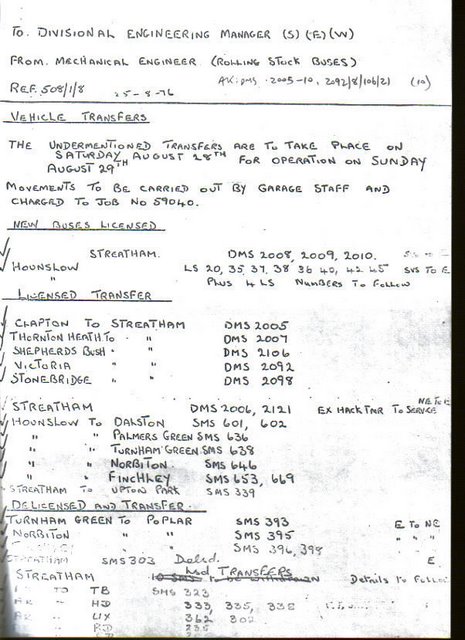 TO. DIVISIONAL ENGINEERING MANAGER (S) (E) (W)
FROM. MECHANICAL ENGINEER (ROLLING STOCK BUSES)
REF. 508/1/8 25-8-76 AK:DMS 2005-10, 2092/8/106/21 (10)
VEHICLE TRANSFERS
THE UNDERMENTIONED TRANSFERS ARE TO TAKE PLACE ON
SATURDAY AUGUST 28TH FOR OPERATION ON SUNDAY
AUGUST 29TH
MOVEMENTS TO BE CARRIED OUT BY GARAGE STAFF AND
CHARGED TO JOB NO 59040.
NEW BUSES LICENSED
STREATHAM. DMS 2008, 2009, 2010.
HOUNSLOW LS 20, 35, 37, 38 36 40, 42 45 SVS TO E
" PLUS 4 LS NUMBERS TO FOLLOW
LICENSED TRANSFER
CLAPTON TO STREATHAM DMS 2005
THORNTON HEATH TO " DMS 2007
SHEPHERDS BUSH " DMS 2106
VICTORIA " " DMS 2092
STONEBRIDGE " " DMS 2098
STREATHAM DMS 2006, 2121 EX HACK TNR TO SERVICE
HOUNSLOW TO DALSTON SMS 601, 602
" " PALMERS GREEN SMS 636
" " TURNHAM GREEN SMS 638
" " NORBITON SMS 646
" " FINCHLEY SMS 653, 669
STREATHAM TO UPTON PARK SMS 339
DELICENSED AND TRANSFER
TURNHAM GREEN TO POPLAR SMS 393 E TO NE
NORBITON " " SMS 395 " " "
" " SMS 396, 398
STREATHAM SMS 303 Delsd. E
Lsd TRANSFERS
STREATHAM 10 SMS to be withdrawn Details to Follow
TO TB SMS 323
" HD 333, 335, 338
" UX 362 302
" RD 235